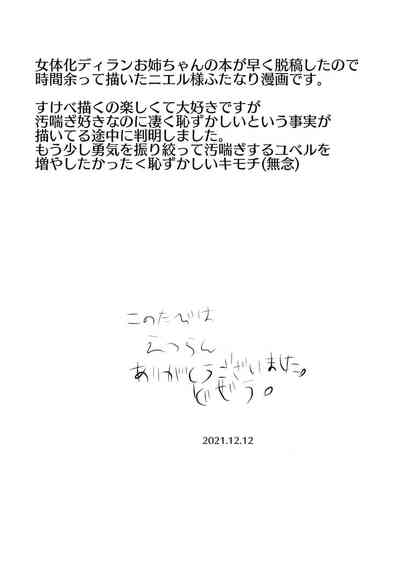 女体化ディランお姉ちゃんの本が早く脱稿したので
時間余って描いたニエル様ふたなり漫画です。
すけべ描くの楽しくて大好きですが
汚喘ぎ好きなのに凄く恥ずかしいという事実が
描いてる途中に判明しました。
もう少し勇気を振り絞って汚喘ぎするユベルを
増やしたかったく恥ずかしいキモチ(無念)
このたびは
えつらん
ありがとうございました。
どぞう。
2021.12.12